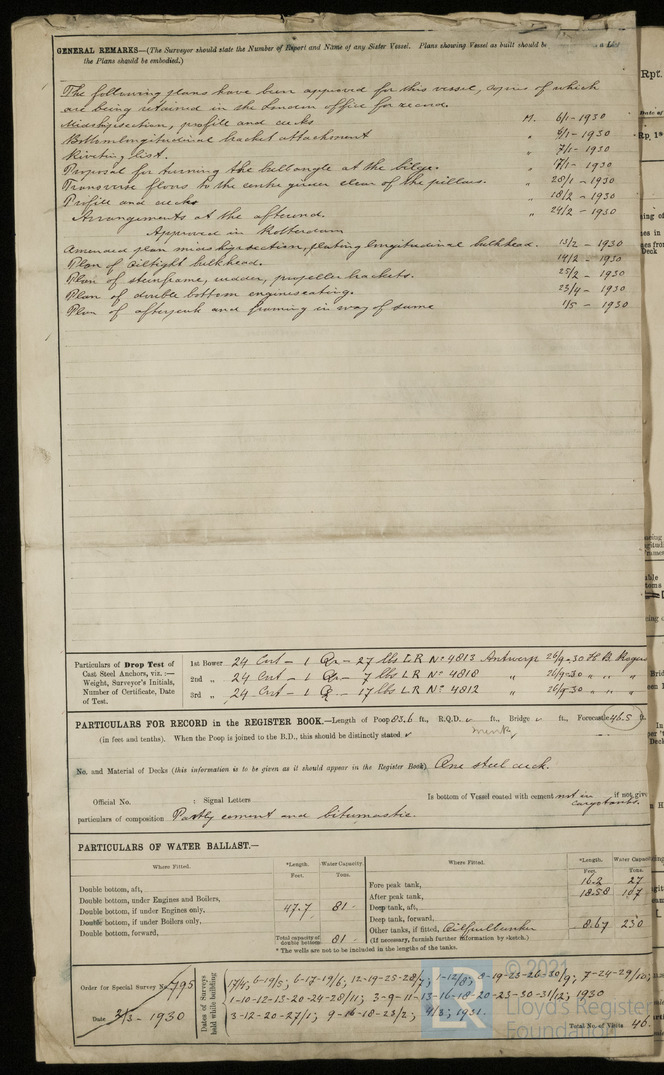 GENERAL REMARKS—(The Surveyor should state the Number of Report and Name of any Sister Vessel. Plans showing Vessel as built should be
the Plans should be embodied.)
The following plans have been approved for this vessel, copies of which
are being retained in the London office for record.
Midshipsection, profile and decks M. 6/1-1930
Bottomlongitudinal bracket attachment „ 6/1-1930
Riveting list. „ 7/1-1930
Proposal for turning the bulbangle at the bilge. „ 7/1-1930
Transverse floors to the centre girder clear of the pillars. „ 28/1-1930
Profile and decks „ 18/2-1930
Arrangements at the afterend. „ 24/2-1930
Approved in Rotterdam
Amended plan midshipsection, plating longitudinal bulkhead. 13/2-1930
Plan of oiltight bulkhead. 14/2-1930
Plan of sternframe, rudder, propeller brackets. 25/2-1930
Plan of double bottom engineseating. 23/4-1930
Plan of afterpeak and framing in way of same 1/5-1930
Particulars of Drop Test of
Cast Steel Anchors, viz.:—
Weight, Surveyor's Initials,
Number of Certificate, Date
of Test.
1st Bower 24 Cwt - 1 Qr - 27 lbs L.R No 4813 Antwerp 26/9-30 H.B.
2nd „ 24 Cwt - 1 Qr - 7 lbs L.R No 4818 „ 26/9-30 „ „ „
3rd „ 24 Cwt - 1 Qr - 17 lbs L.R No 4812 „ 26/9-30 „ „ „
PARTICULARS FOR RECORD in the REGISTER BOOK.—Length of Poop 83.6 ft., R.Q.D. ft., Bridge ft., Forecastle 46.5 ft.
(in feet and tenths). When the Poop is joined to the B.D., this should be distinctly stated
No. and Material of Decks (this information is to be given as it should appear in the Register Book) One steel deck.
Official No. : Signal Letters Is bottom of Vessel coated with cement not in cargotanks. if not give
particulars of composition Partly cement and bitumastic.
PARTICULARS OF WATER BALLAST.—
Where Fitted. *Length. Water Capacity. Where Fitted. *Length. Water Capacity
Feet. Tons. Feet. Tons.
Double bottom, aft, Fore peak tank, 16.2 27
Double bottom, under Engines and Boilers, After peak tank, 18.58 107
Double bottom, if under Engines only, 47.7 81 Deep tank, aft,
Double bottom, if under Boilers only, Deep tank, forward,
Double bottom, forward, Other tanks, if fitted, Oilfuelbunker 8.67 230
Total capacity of double bottom 81 (If necessary, furnish further information by sketch.)
* The wells are not to be included in the lengths of the tanks.
Order for Special Survey No. 795
Date 3/3-1930
Dates of Surveys held while building
17/4; 6-19/5; 6-17-19/6; 12-19-25-28/7; 1-12/8; 8-19-23-26-30/9; 7-24-29/10;
1-10-12-15-20-24-28/11; 3-9-11-13-16-18-20-23-30-31/12; 1930
3-12-20-27/1; 9-16-18-23/2; 9/3; 1931.
Total No. of Visits 46.
© 2021
LR
Lloyd's Register
Foundation
Rpt.